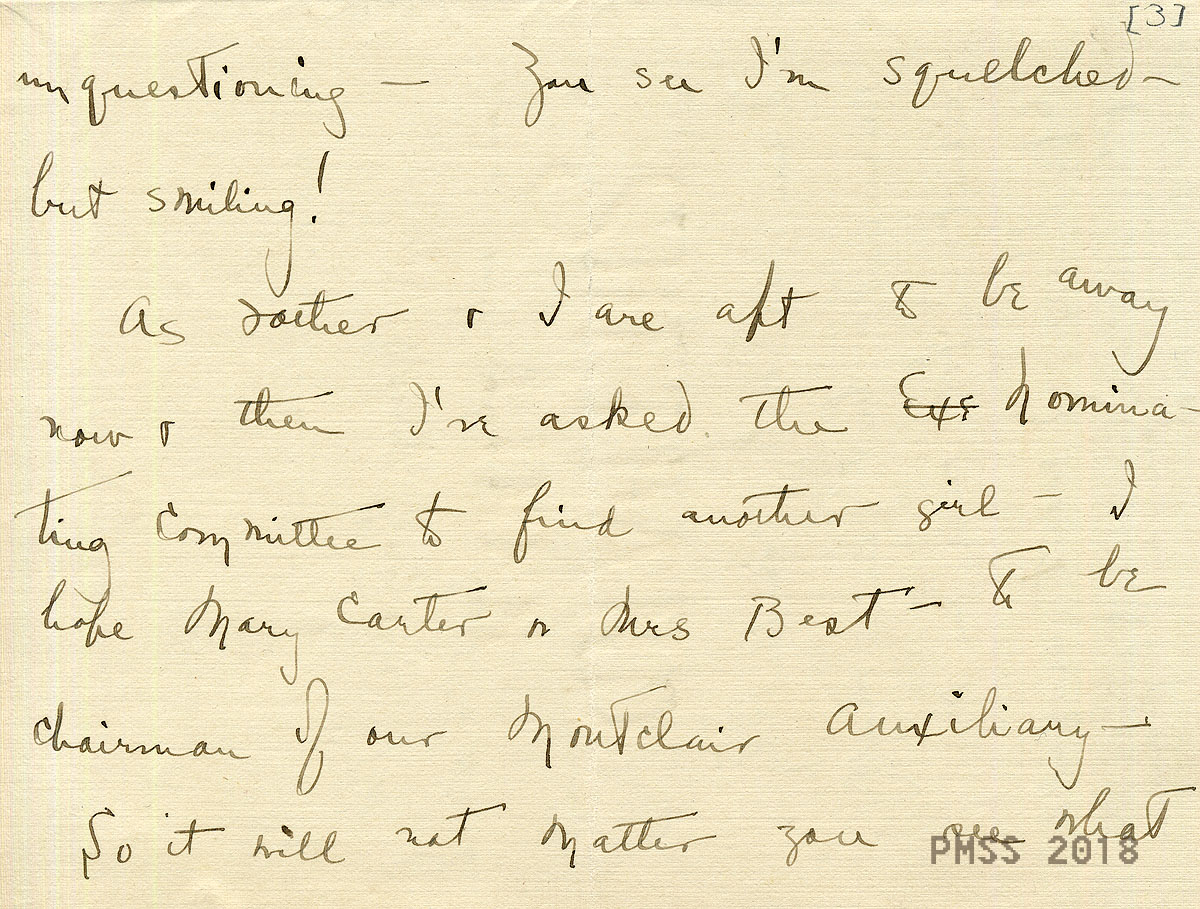 [3]
unquestioning — You see I'm squelched —
but smiling!
As Father & I are apt to be away
now & then I've asked the Exe Nomina-
ting Committee to find another girl — I
hope Mary Carter or Mrs Best — to be
chairman of our Montclair Auxiliary —
So it will not matter you see what
PMSS 2018